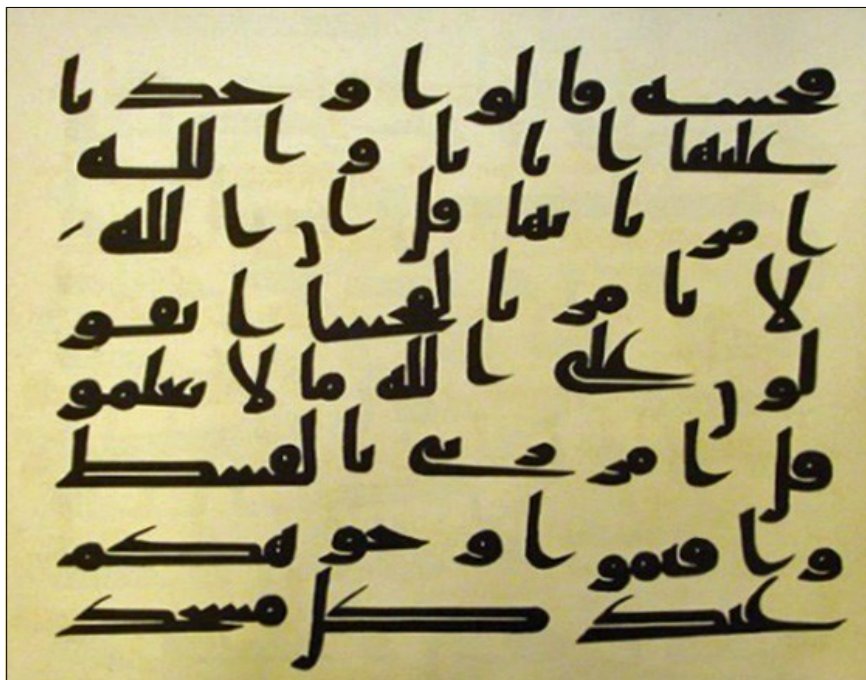 فحشه قالوا وجدنا
عليها ابانا والله
امرنا بها قل ان الله
لا يامر بالفحشا اتقو
لون على الله ما لا تعلمو
قل امر ربي بالقسط
واقيموا وجوهكم
عند كل مسجد